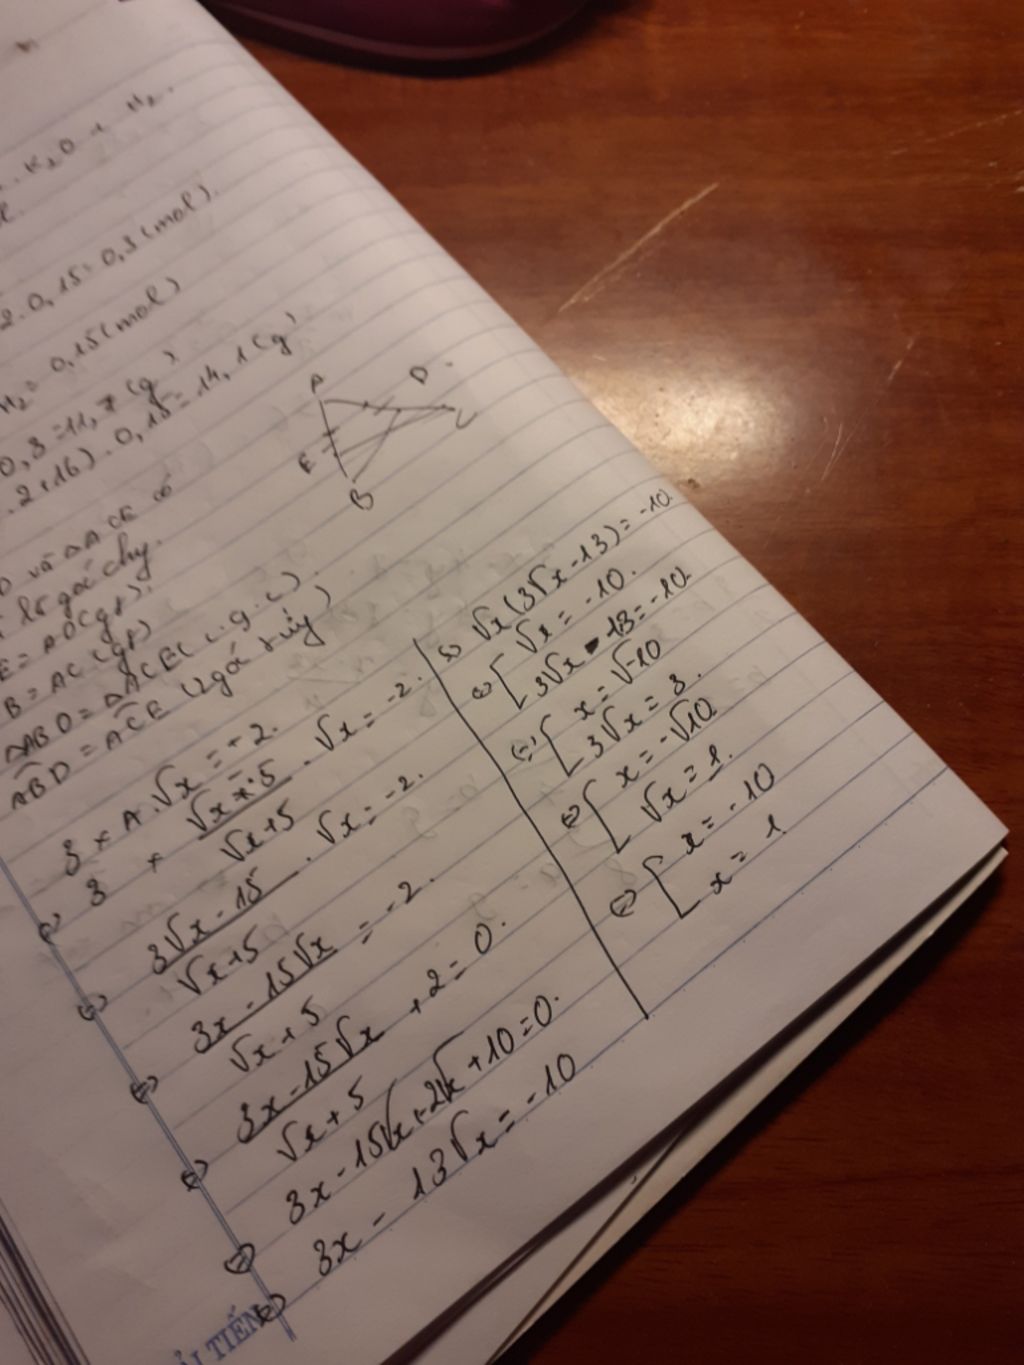 K₂O + H₂.
2.0,15=0,3(mol).
H₂= 0,15(mol)
0,3=11,7(g)
.2+16).0,15=14,1(g)
A
D
E
C
B
và ΔACE có
góc chung.
E=AD(gt).
B=AC(gt)
ΔABD=ΔACE(c.g.c)
ABD=ACE (2 góc t/ứng)
3×A.√x=-2.
(=) 3 × √x-5/√x+5 . √x=-2.
(=) 3√x-15/√x+5 . √x=-2.
(=) 3x-15√x/√x+5 = -2.
(=) 3x-15√x/√x+5 +2=0.
(=) 3x-15√x+2√x+10=0.
(=) 3x-13√x=-10
(=) √x(3√x-13)=-10
(=) [√x=-10.
3√x-13=-10
(=) [x=√-10
3√x=3.
(=) [x=-√10
√x=1.
(=) [x=-10
x=1
ẢI TIẾN